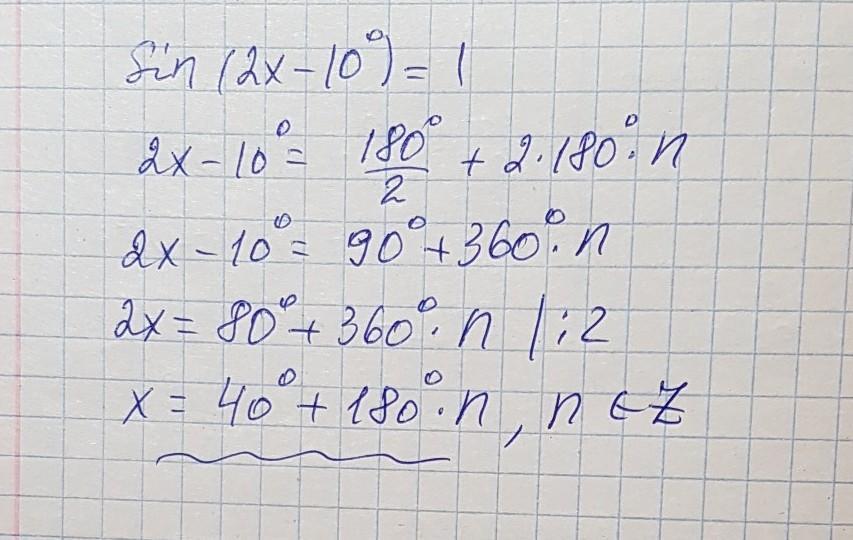 Sin (2x - 10°) = 1
2x - 10° = 180°/2 + 2·180°·n
2x - 10° = 90° + 360°·n
2x = 80° + 360°·n | :2
x = 40° + 180°·n, n ∈ Z